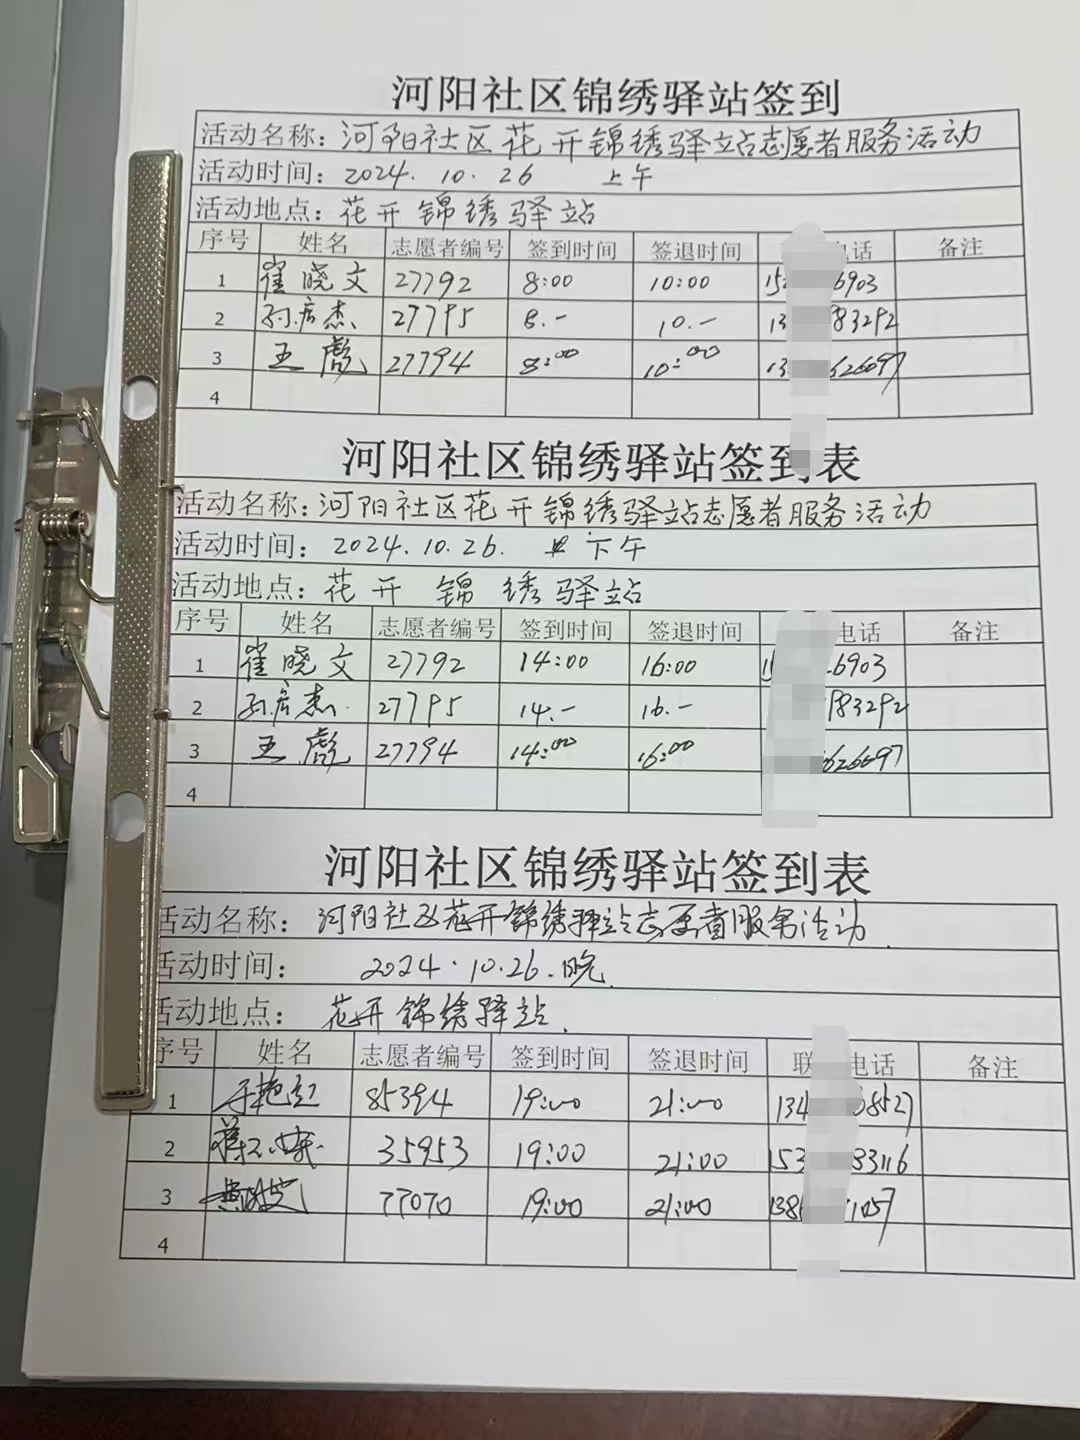 河阳社区锦绣驿站签到
活动名称：河阳社区花开锦绣驿站志愿者服务活动
活动时间：2024.10.26 上午
活动地点：花开锦绣驿站
序号 姓名 志愿者编号 签到时间 签退时间 电话 备注
1 崔晓文 27792 8:00 10:00 15 6903
2 27795 8.- 10.- 13 83292
3 王彪 27794 8:00 10:00 13 626697
4
河阳社区锦绣驿站签到表
活动名称：河阳社区花开锦绣驿站志愿者服务活动
活动时间：2024.10.26. 下午
活动地点：花开锦绣驿站
序号 姓名 志愿者编号 签到时间 签退时间 电话 备注
1 崔晓文 27792 14:00 16:00 6903
2 27795 14.- 16.- 83292
3 王彪 27794 14:00 16:00 626697
4
河阳社区锦绣驿站签到表
活动名称：河阳社区花开锦绣驿站志愿者服务活动.
活动时间：2024.10.26.晚.
活动地点：花开锦绣驿站.
序号 姓名 志愿者编号 签到时间 签退时间 联 电话 备注
1 85394 19:00 21:00 134 8527
2 35953 19:00 21:00 153 33116
3 77070 19:00 21:00 138 1057
4